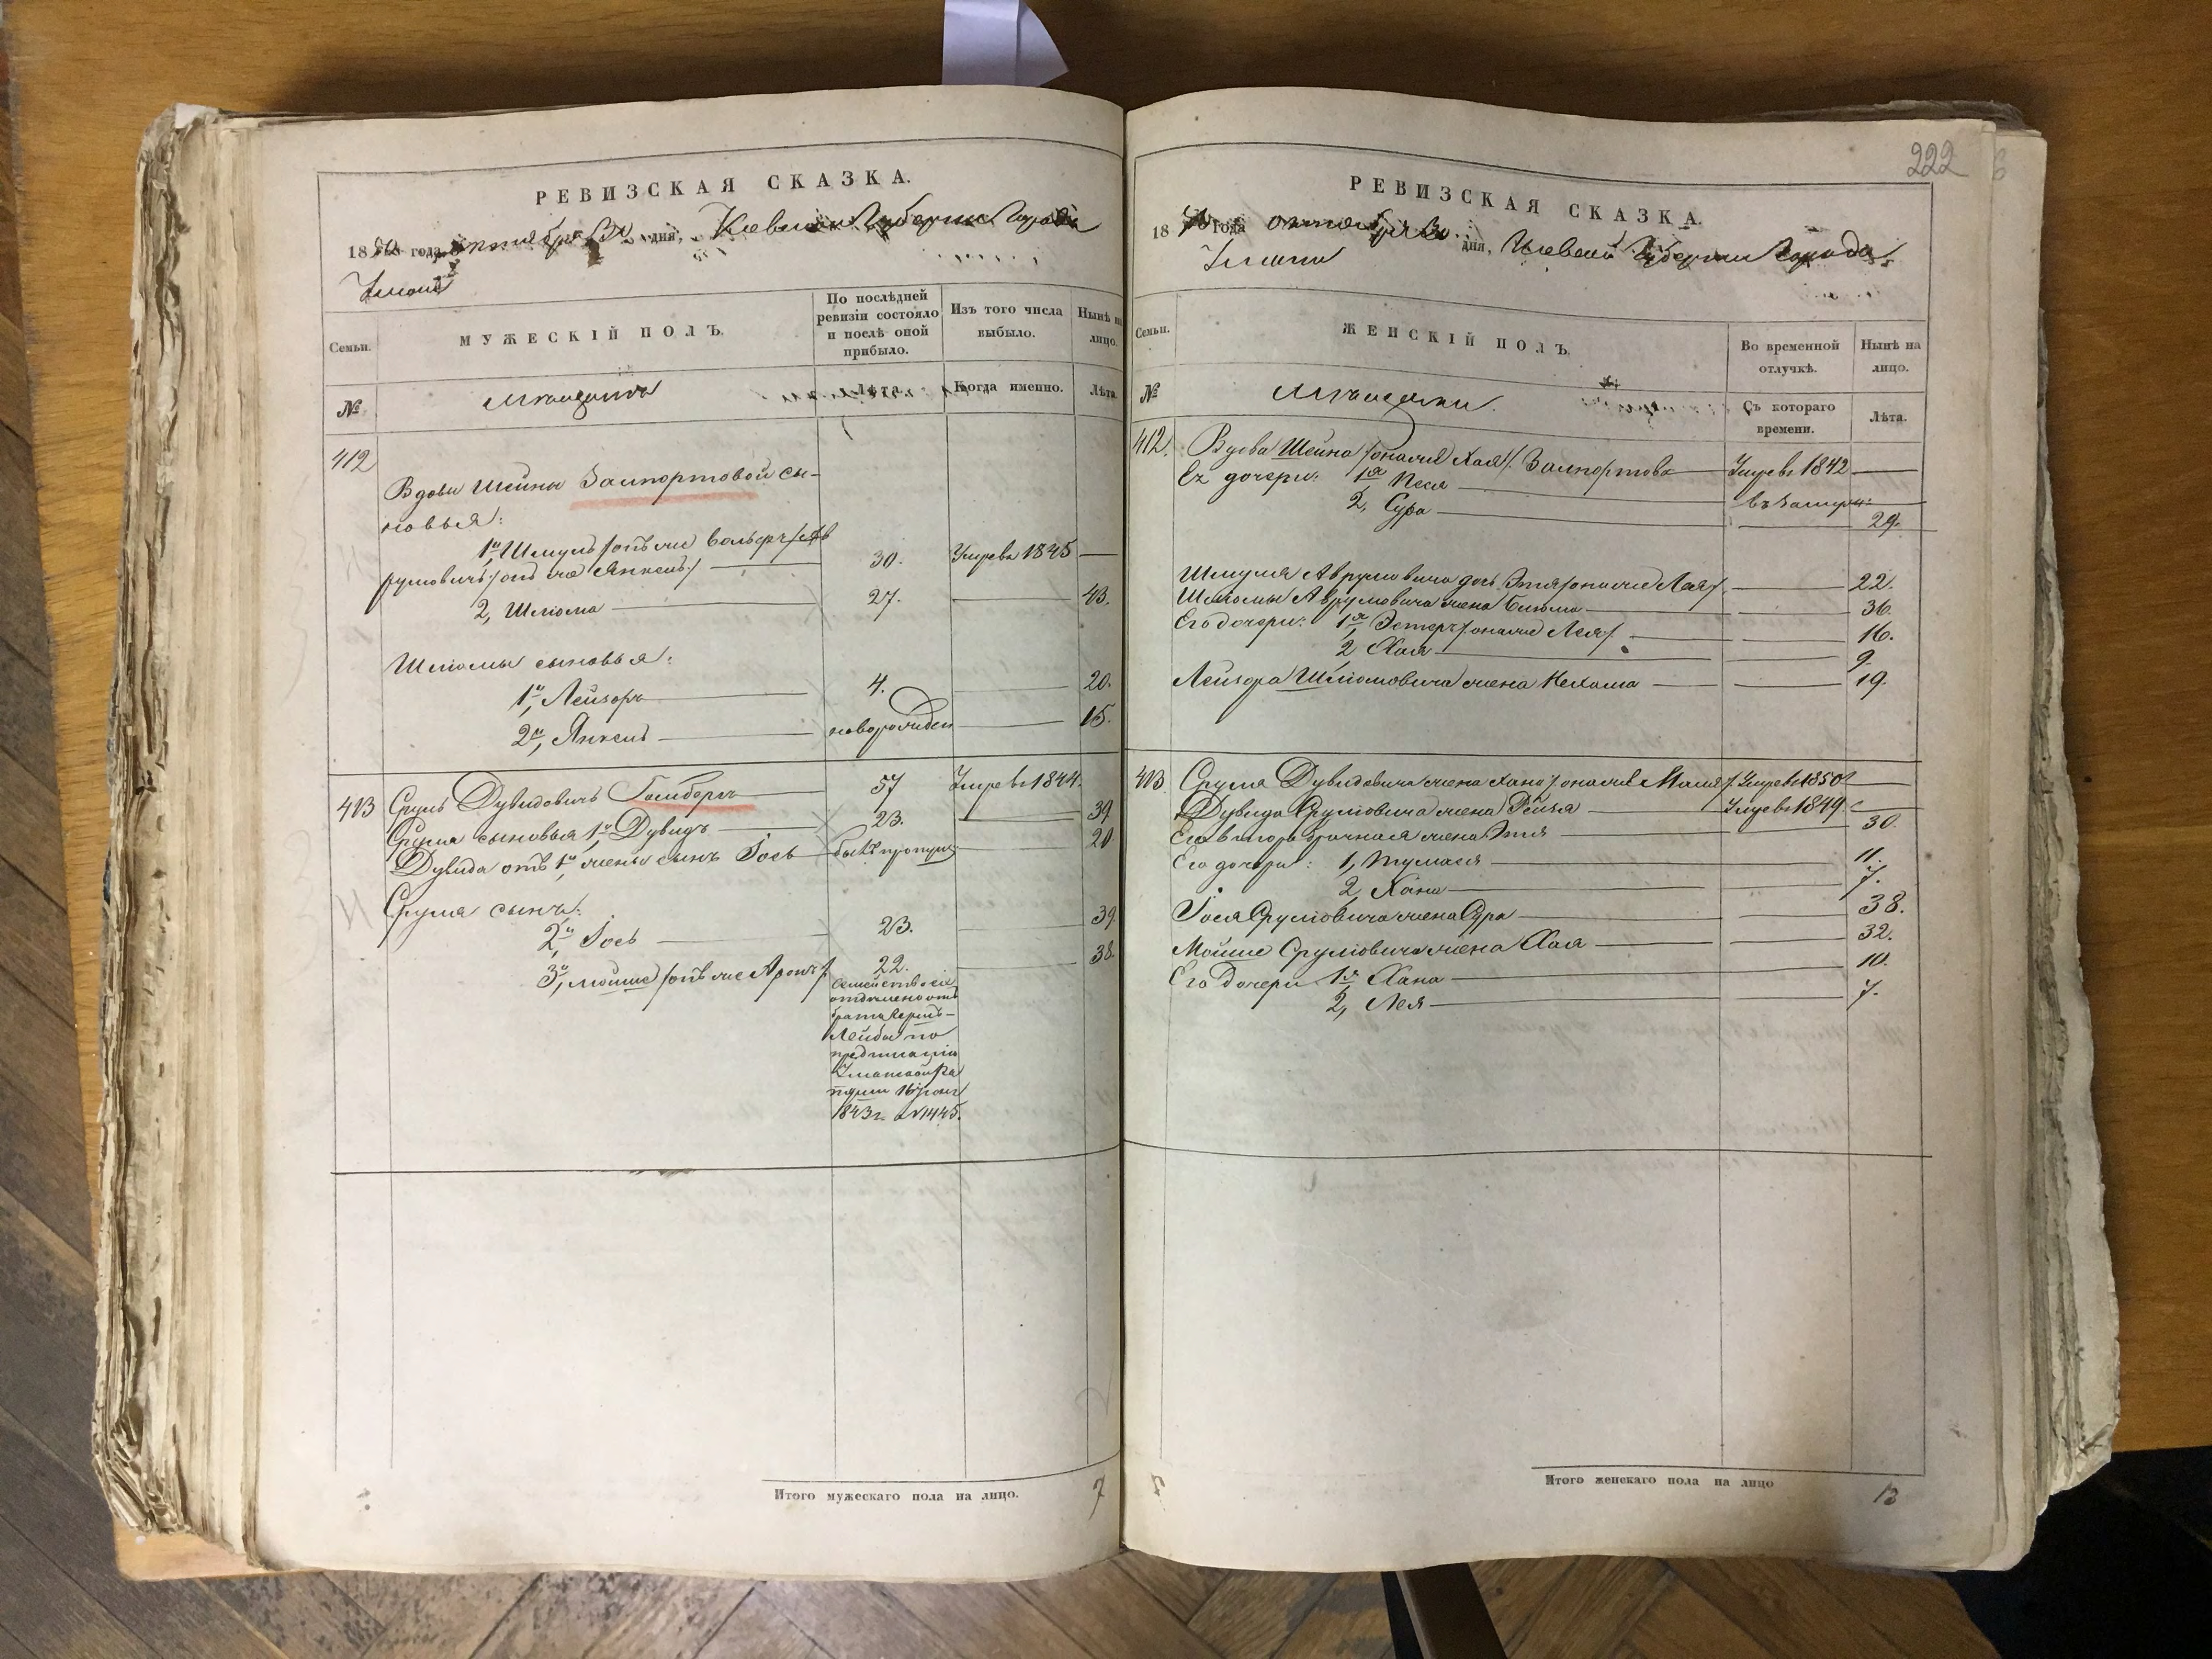 222
РЕВИЗСКАЯ СКАЗКА.
1850 года октября 30 дня, Киевской Губернии Города
Умани
Семьи.
МУЖЕСКІЙ ПОЛЪ.
По послѣдней ревизіи состояло и послѣ оной прибыло.
Изъ того числа выбыло.
Нынѣ на лицо.
№
Мѣщане
Лѣта.
Когда именно.
Лѣта.
412
Вдовы Шейны Зампортовой сы-
новья:
1й, Шмуль /онъ же Вольфъ/ Ав
румовичъ /онъ же Янкель/ 30. Умре въ 1845
2, Шлiома 27. 43.
Шлiомы сыновья:
1й, Лейзоръ 4. 20.
2й, Янкель новорожден 15.
413
Сруль Дувидовичъ 57 Умре въ 1844.
Сруля сыновья 1й Дувидъ 23. 39
Дувида отъ 1й жены сынъ Іось былъ пропущ. 20
Сруля сынъ:
2й, Іось 23. 39
3й, Мойше /онъ же Аронъ/ 22. 38
Семейство сіе
отдѣлено отъ
брата
Лейбы по
предписанію
1843 г. №1445.
Итого мужескаго пола на лицо. 7
РЕВИЗСКАЯ СКАЗКА.
1850 года октября 30 дня, Киевской Губернии Города
Умани
Семьи.
ЖЕНСКІЙ ПОЛЪ.
Во временной отлучкѣ.
Нынѣ на лицо.
№
Мѣщанки.
Съ котораго времени.
Лѣта.
412.
Вдова Шейна /она же Хая/ Зампортова Умре въ 1842
Ея дочери: 1я Песя
2, Сура 29.
Шмуля Аврумовича дочь Этя /она же Лея/ 22.
Шлiомы Аврумовича жена Блюма 36.
Его дочери: 1я, Эстеръ /она же Лея/ 16.
2, Хая 9.
Лейзора Шлiомовича жена Нехама 19.
413.
Сруля Дувидовича жена Хана /она же Маля/ Умре въ 1850
Дувида Срулiовича жена Рейзя Умре въ 1849.
Его второбрачная жена Этя 30.
Его дочери: 1, 11.
2, Хана 7.
Іося Срулiовича жена Сура 38.
Мойше Срулiовича жена Хая 32.
Его дочери 1я Хана 10.
2, Лея 7.
Итого женскаго пола на лицо 12